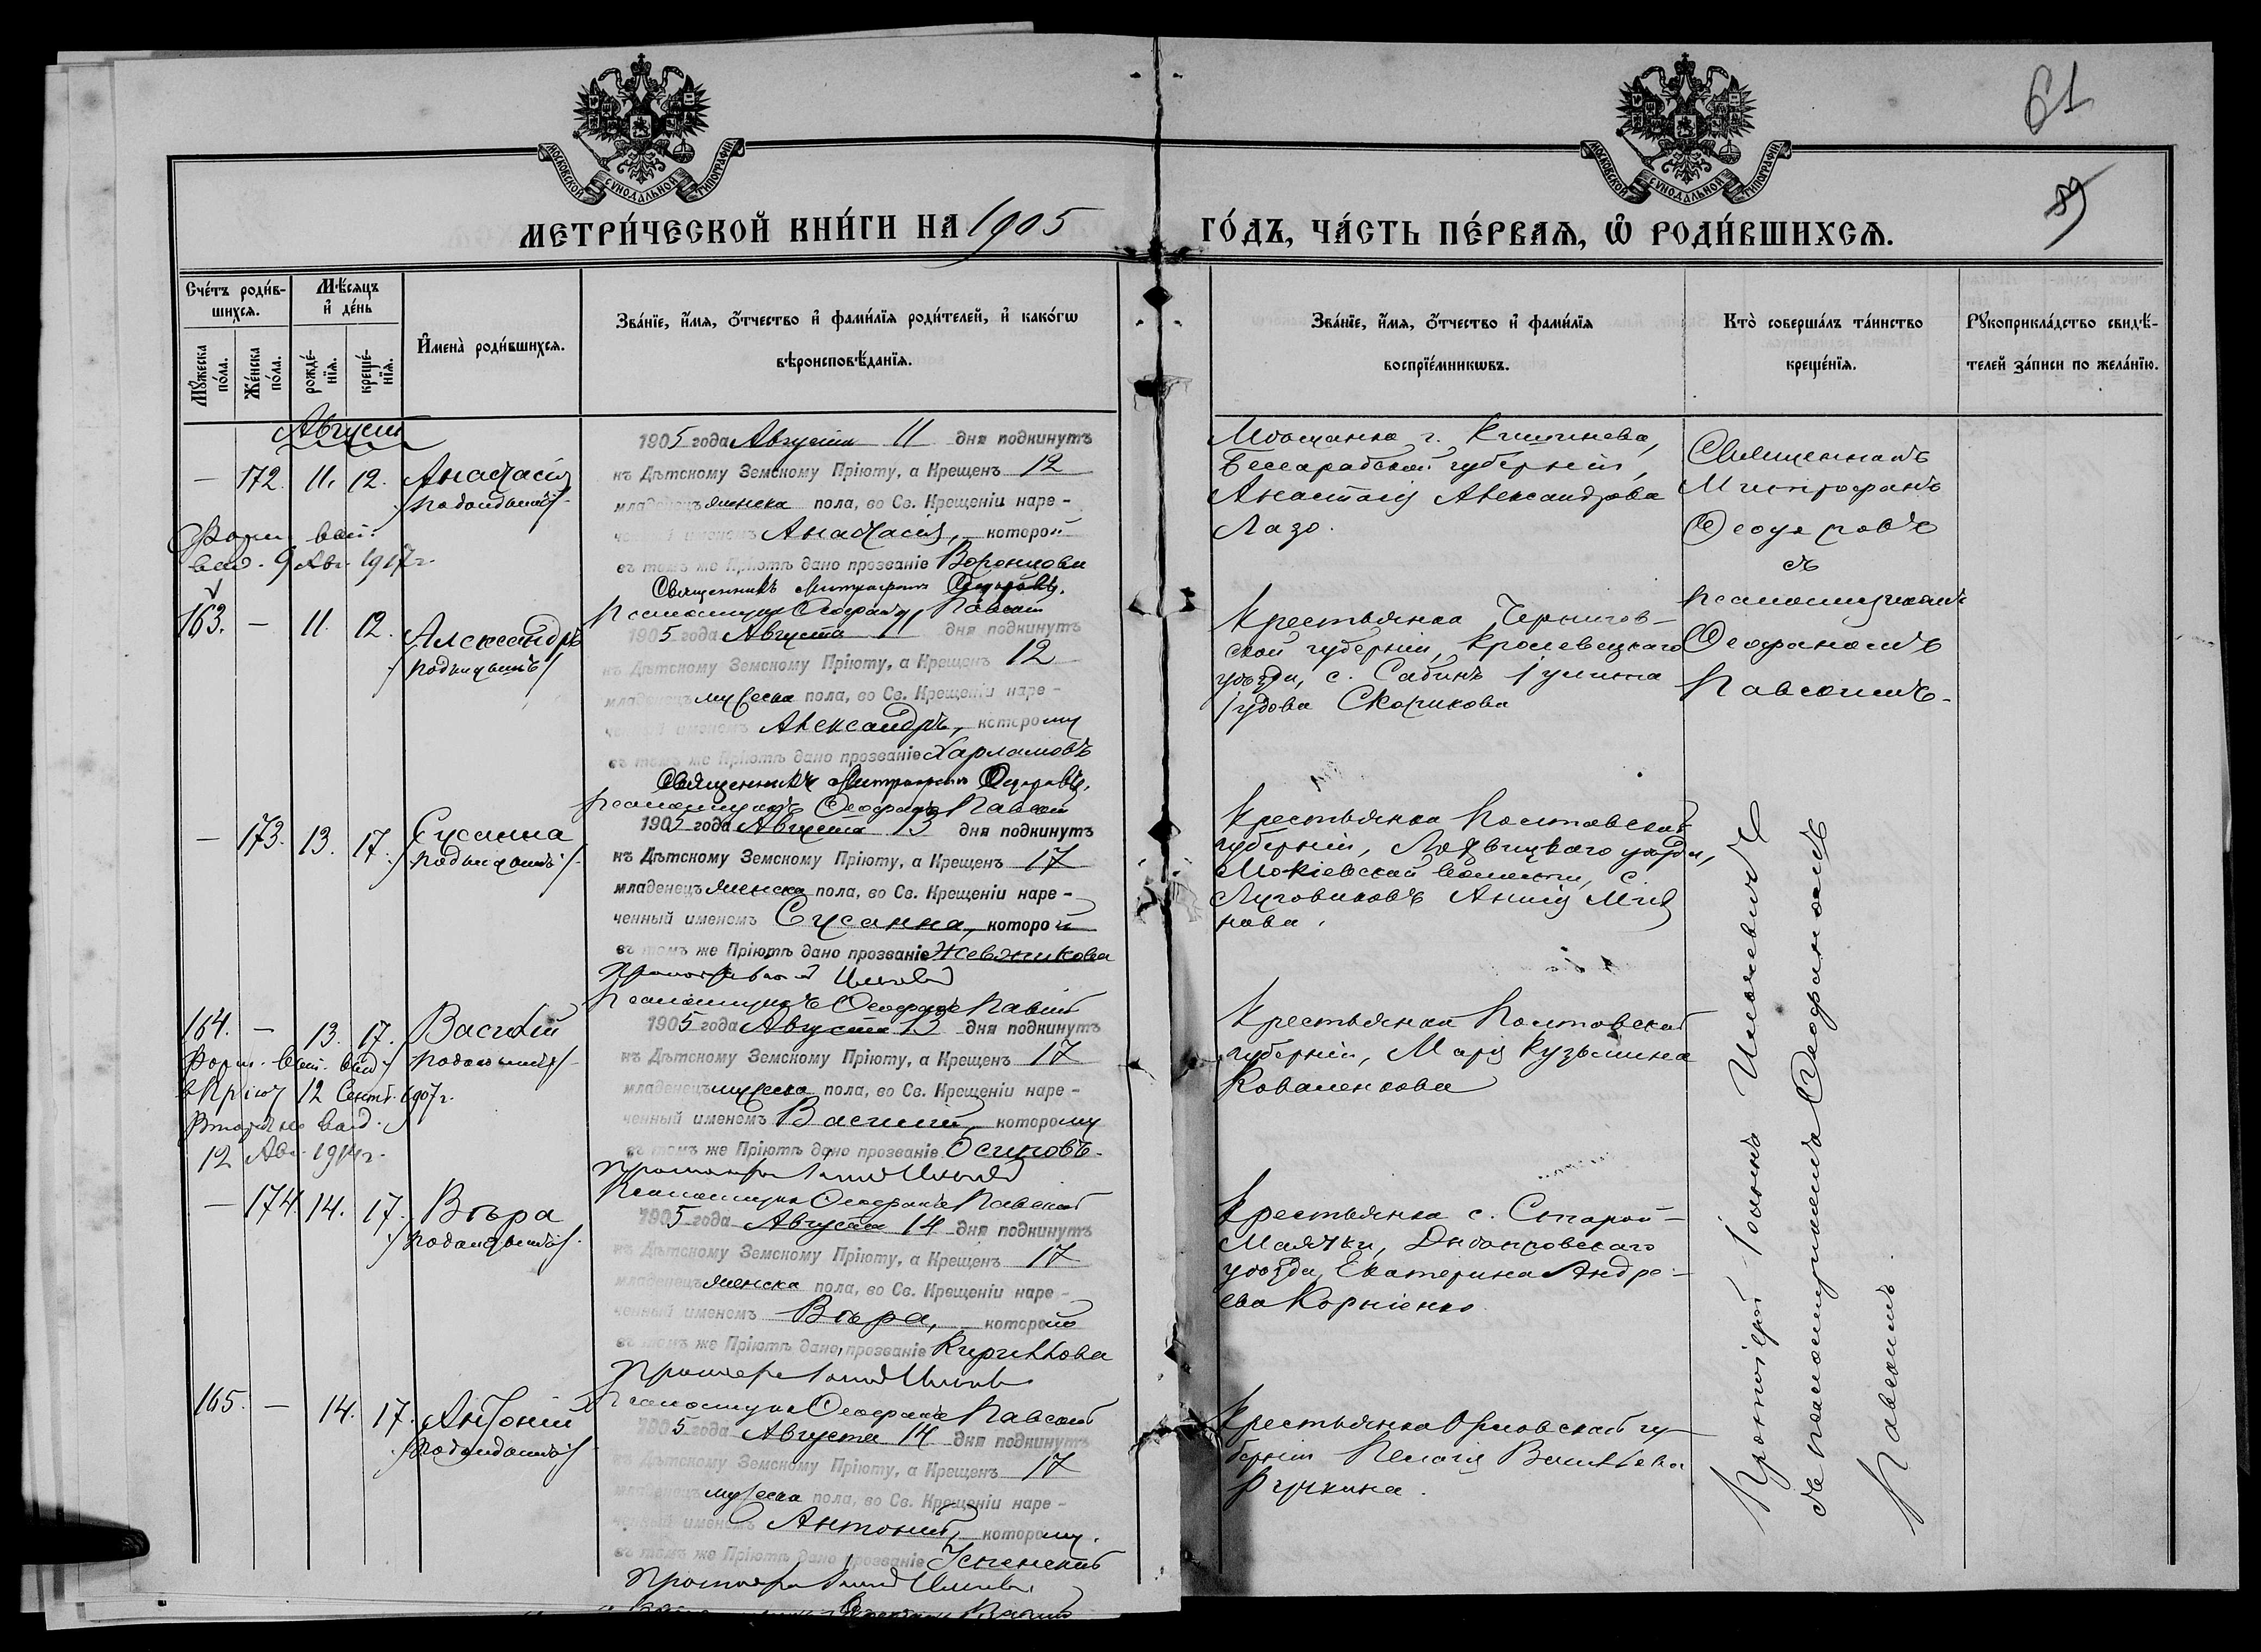 61
89
МОСКОВСКОЙ СѴНОДАЛЬНОЙ ТИПОГРАФІИ
МОСКОВСКОЙ СѴНОДАЛЬНОЙ ТИПОГРАФІИ
МЕТРИ́ЧЕСКОЙ КНИ́ГИ НА 1905 ГО́ДЪ, ЧА́СТЬ ПЕ́РВАѦ, Ѡ҆ РОДИ́ВШИХСѦ.
Сче́тъ роди́в-
шихсѧ.
Мѣ́сяцъ
и҆ де́нь
Мꙋ́жеска
по́ла.
Же́нска
по́ла.
рожде́-
нїѧ.
креще́-
нїѧ.
И҆мена̀ роди́вшихсѧ.
Зва́нїе, и҆́мѧ, ѻ҆́тчество и҆ фами́лїѧ роди́телей, и҆ како́гѡ
вѣроисповѣ́данїѧ.
Зва́нїе, и҆́мѧ, ѻ҆́тчество и҆ фами́лїѧ
воспрїе́мникѡвъ.
Кто̀ соверша́лъ та́инство
креще́нїѧ.
Рꙋкоприкла́дство свидѣ́-
телей за́писи по жела́нїю.
Августъ
— 172. 11. 12. Анастасія
/подкидышъ/
вып.
выд. 9 Авг. 1917 г.
1905 года Августа 11 дня подкинутъ
къ Дѣтскому Земскому Пріюту, а Крещенъ 12
младенецъ женска пола, во Св. Крещеніи наре-
ченный именемъ Анастасія, которой
въ томъ же Пріютѣ дано прозваніе Воронцова
Священникъ Митрофанъ
Псаломщикъ Феофанъ Павскій
Мѣщанка г. Кишинева,
Бессарабской губерніи,
Анастасія Александрова
Лазо.
Священникъ
Митрофанъ
съ
псаломщикомъ
Феофаномъ
Павскимъ.
163. — 11. 12. Александръ
/подкидышъ/
1905 года Августа 11 дня подкинутъ
къ Дѣтскому Земскому Пріюту, а Крещенъ 12
младенецъ мужеска пола, во Св. Крещеніи наре-
ченный именемъ Александръ, которому
въ томъ же Пріютѣ дано прозваніе Харламовъ
Священникъ Митрофанъ
Псаломщикъ Феофанъ Павскій
Крестьянка Чернигов-
ской губерніи, Кролевецкаго
уѣзда, с. Іулита
Іудова Скорикова
— 173. 13. 17. Сусанна
/подкидышъ/
1905 года Августа 13 дня подкинутъ
къ Дѣтскому Земскому Пріюту, а Крещенъ 17
младенецъ женска пола, во Св. Крещеніи наре-
ченный именемъ Сусанна, которой
въ томъ же Пріютѣ дано прозваніе
Псаломщикъ Феофанъ Павскій
Крестьянка Полтавской
губерніи, Лохвицкаго уѣзда,
волости, с.
Луговиковъ
164. — 13. 17. Василій
/подкидышъ/
Форм. вып. выд.
12 Сент. 1907 г.
выд.
12 Авг. 1914 г.
1905 года Августа 13 дня подкинутъ
къ Дѣтскому Земскому Пріюту, а Крещенъ 17
младенецъ мужеска пола, во Св. Крещеніи наре-
ченный именемъ Василій, которому
въ томъ же Пріютѣ дано прозваніе Осиповъ.
Псаломщикъ Феофанъ Павскій
Крестьянка Полтавской
губерніи, Марія Кузьмина
Коваленкова
Протоіерей Іоаннъ
съ псаломщикомъ Феофаномъ
Павскимъ.
— 174. 14. 17. Вѣра
/подкидышъ/.
1905 года Августа 14 дня подкинутъ
къ Дѣтскому Земскому Пріюту, а Крещенъ 17
младенецъ женска пола, во Св. Крещеніи наре-
ченный именемъ Вѣра, которой
въ томъ же Пріютѣ дано прозваніе Кириллова
Псаломщикъ Феофанъ Павскій
Крестьянка с. Старой-
Маячки, Днѣпровскаго
уѣзда, Екатерина Андре-
ева Корніенко.
165. — 14. 17. Антоній
/подкидышъ/
1905 года Августа 14 дня подкинутъ
къ Дѣтскому Земскому Пріюту, а Крещенъ 17
младенецъ мужеска пола, во Св. Крещеніи наре-
ченный именемъ Антоній, которому
въ томъ же Пріютѣ дано прозваніе Успенскій
Крестьянка Орловской гу-
берніи Пелагія Васильева